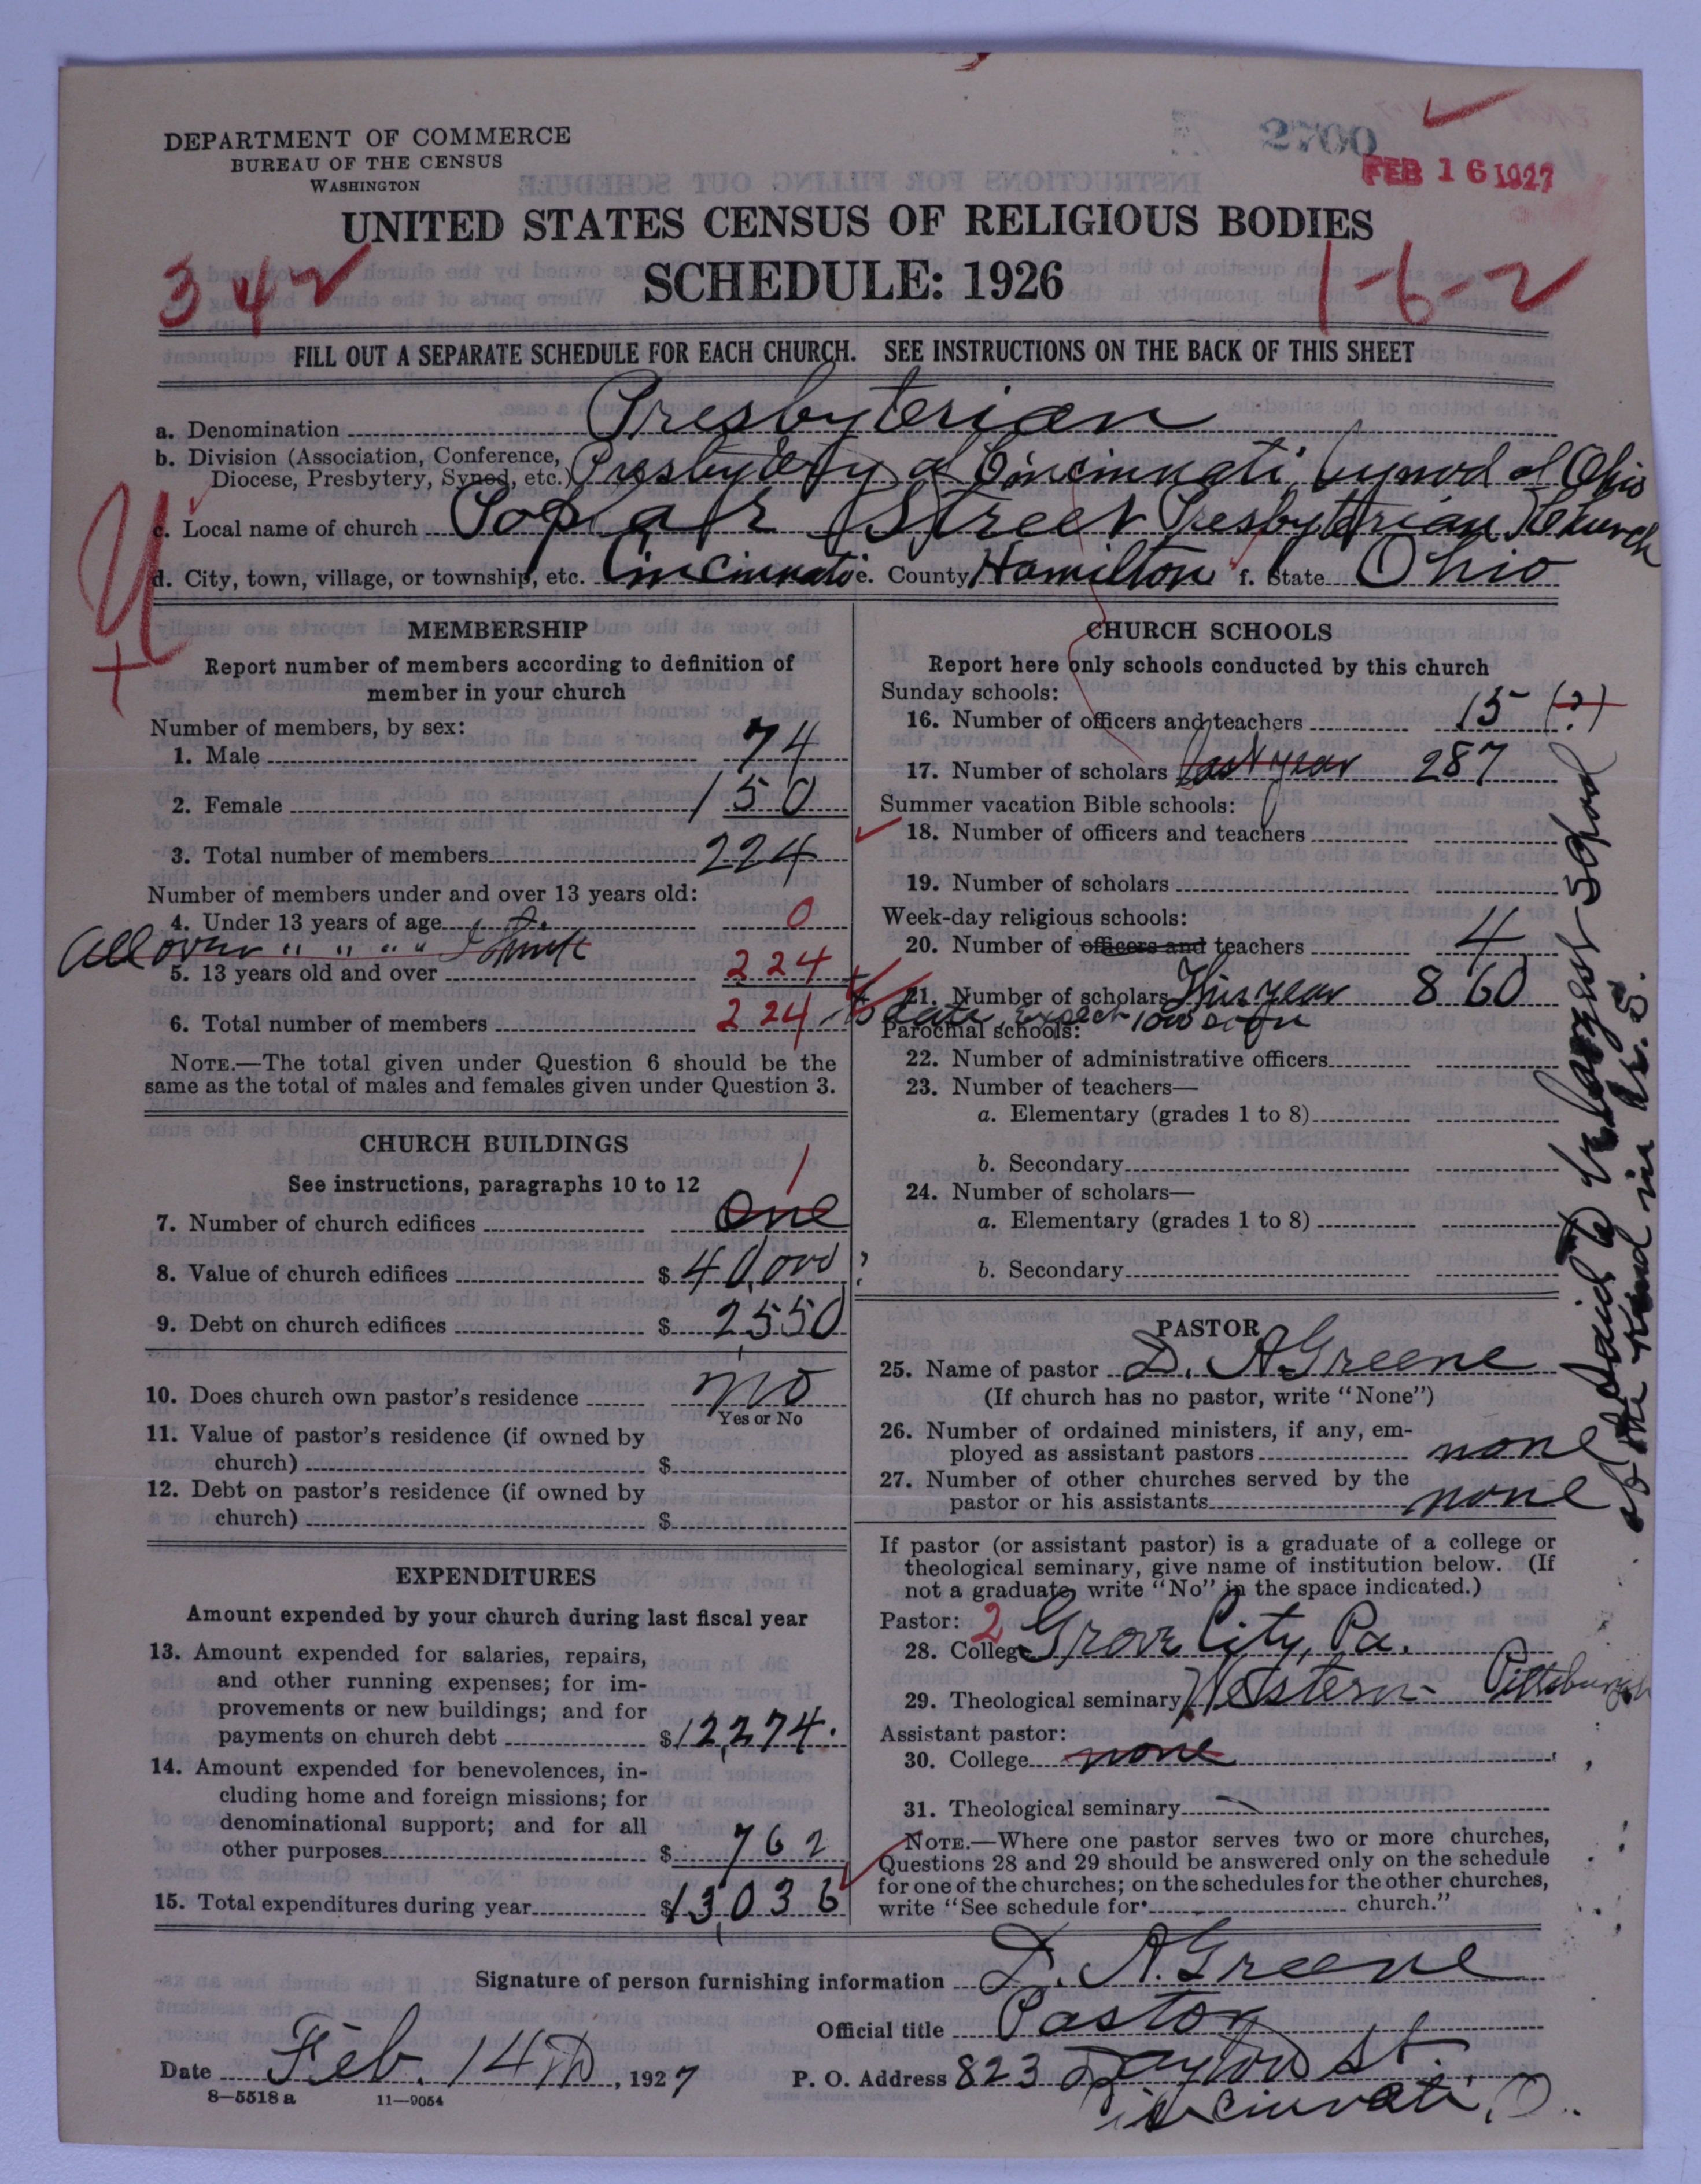 2700
FEB 16 1927
DEPARTMENT OF COMMERCE
BUREAU OF THE CENSUS
WASHINGTON
UNITED STATES CENSUS OF RELIGIOUS BODIES
SCHEDULE: 1926
342
1-6-2
FILL OUT A SEPARATE SCHEDULE FOR EACH CHURCH. SEE INSTRUCTIONS ON THE BACK OF THIS SHEET
a. Denomination Presbyterian
b. Division (Association, Conference, Diocese, Presbytery, Synod, etc.) Presbytery of Cincinnati, Synod of Ohio
c. Local name of church Poplar Street Presbyterian Church
d. City, town, village, or township, etc. Cincinnati e. County Hamilton f. State Ohio
MEMBERSHIP
Report number of members according to definition of
member in your church
Number of members, by sex:
1. Male 74
2. Female 150
3. Total number of members 224
Number of members under and over 13 years old:
4. Under 13 years of age 0
All over " " " " I think
5. 13 years old and over 224
6. Total number of members 224
NOTE.—The total given under Question 6 should be the
same as the total of males and females given under Question 3.
CHURCH BUILDINGS
See instructions, paragraphs 10 to 12
1
7. Number of church edifices One
8. Value of church edifices $ 40,000
9. Debt on church edifices $ 2,550
10. Does church own pastor's residence no
Yes or No
11. Value of pastor's residence (if owned by
church) $
12. Debt on pastor's residence (if owned by
church) $
EXPENDITURES
Amount expended by your church during last fiscal year
13. Amount expended for salaries, repairs,
and other running expenses; for im-
provements or new buildings; and for
payments on church debt $ 12,274.
14. Amount expended for benevolences, in-
cluding home and foreign missions; for
denominational support; and for all
other purposes $ 762
15. Total expenditures during year $ 13,036
CHURCH SCHOOLS
Report here only schools conducted by this church
Sunday schools:
16. Number of officers and teachers 15 (?)
17. Number of scholars last year 287
Summer vacation Bible schools:
18. Number of officers and teachers
19. Number of scholars
Week-day religious schools:
20. Number of officers and teachers 4
21. Number of scholars This year 860
to date, expect 1000 soon
Parochial schools:
22. Number of administrative officers
23. Number of teachers—
a. Elementary (grades 1 to 8)
b. Secondary
24. Number of scholars—
a. Elementary (grades 1 to 8)
b. Secondary
Said to be largest school
of the kind in U. S.
PASTOR
25. Name of pastor D. A Greene
(If church has no pastor, write "None")
26. Number of ordained ministers, if any, em-
ployed as assistant pastors none
27. Number of other churches served by the
pastor or his assistants none
If pastor (or assistant pastor) is a graduate of a college or
theological seminary, give name of institution below. (If
not a graduate, write "No" in the space indicated.)
Pastor: 2
28. College Grove City, Pa.
29. Theological seminary Western - Pittsburgh
Assistant pastor:
30. College none
31. Theological seminary
NOTE.—Where one pastor serves two or more churches,
Questions 28 and 29 should be answered only on the schedule
for one of the churches; on the schedules for the other churches,
write "See schedule for church."
Signature of person furnishing information D. A. Greene
Official title Pastor
Date Feb. 14th, 1927 P. O. Address 823 Dayton St.
Cincinnati, O.
8—5518 a 11—9054